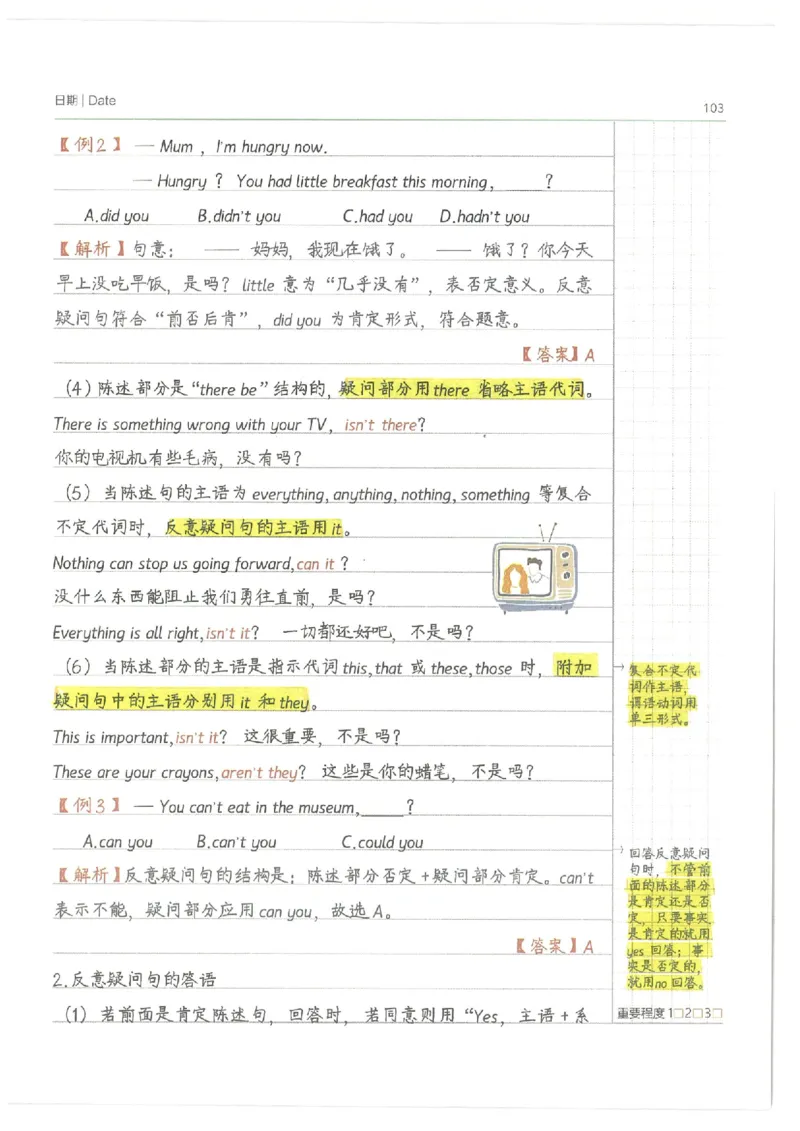 日期 | Date
103
【例2】 — Mum , I'm hungry now.
— Hungry ? You had little breakfast this morning, ____ ?
A.did you B.didn't you C.had you D.hadn't you
【解析】句意: —— 妈妈, 我现在饿了。 —— 饿了? 你今天
早上没吃早饭, 是吗? little 意为“几乎没有”, 表否定意义。反意
疑问句符合“前否后肯”, did you 为肯定形式, 符合题意。
【答案】A
(4) 陈述部分是“there be”结构的, 疑问部分用there 省略主语代词。
There is something wrong with your TV, isn't there?
你的电视机有些毛病, 没有吗?
(5) 当陈述句的主语为 everything, anything, nothing, something 等复合
不定代词时, 反意疑问句的主语用it。
Nothing can stop us going forward,can it ?
没什么东西能阻止我们勇往直前, 是吗?
Everything is all right,isn't it? 一切都还好吧, 不是吗?
(6) 当陈述部分的主语是指示代词 this,that 或 these,those 时, 附加
疑问句中的主语分别用 it 和 they。
This is important,isn't it? 这很重要, 不是吗?
These are your crayons,aren't they? 这些是你的蜡笔, 不是吗?
【例3】 — You can't eat in the museum,____ ?
A.can you B.can't you C.could you
【解析】反意疑问句的结构是: 陈述部分否定 +疑问部分肯定。can't
表示不能, 疑问部分应用 can you, 故选 A。
【答案】A
2.反意疑问句的答语
(1) 若前面是肯定陈述句, 回答时, 若同意则用“Yes, 主语 + 系
复合不定代
词作主语,
谓语动词用
单三形式。
回答反意疑问
句时, 不管前
面的陈述部分
是肯定还是否
定, 只要事实
是肯定的就用
yes 回答; 事
实是否定的,
就用no 回答。
重要程度 1□2□3□